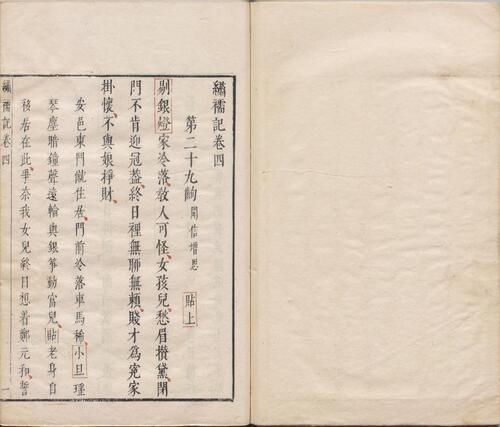 繡襦記卷四
第二十九齣 聞信增悲 貼上
剔銀燈家冷落教人可怪女孩兒愁眉攢黛閉
門不肯迎冠蓋終日裡無聊無賴賤才爲寃家
掛懷不與娘掙財
安邑東門僦住居門前冷落車馬稀小旦瑶
琴塵暗鐘聲遠輸與銀箏動富兒貼老身自
移居在此爭奈我女兒終日想着鄭元和誓
繡襦記卷四
一